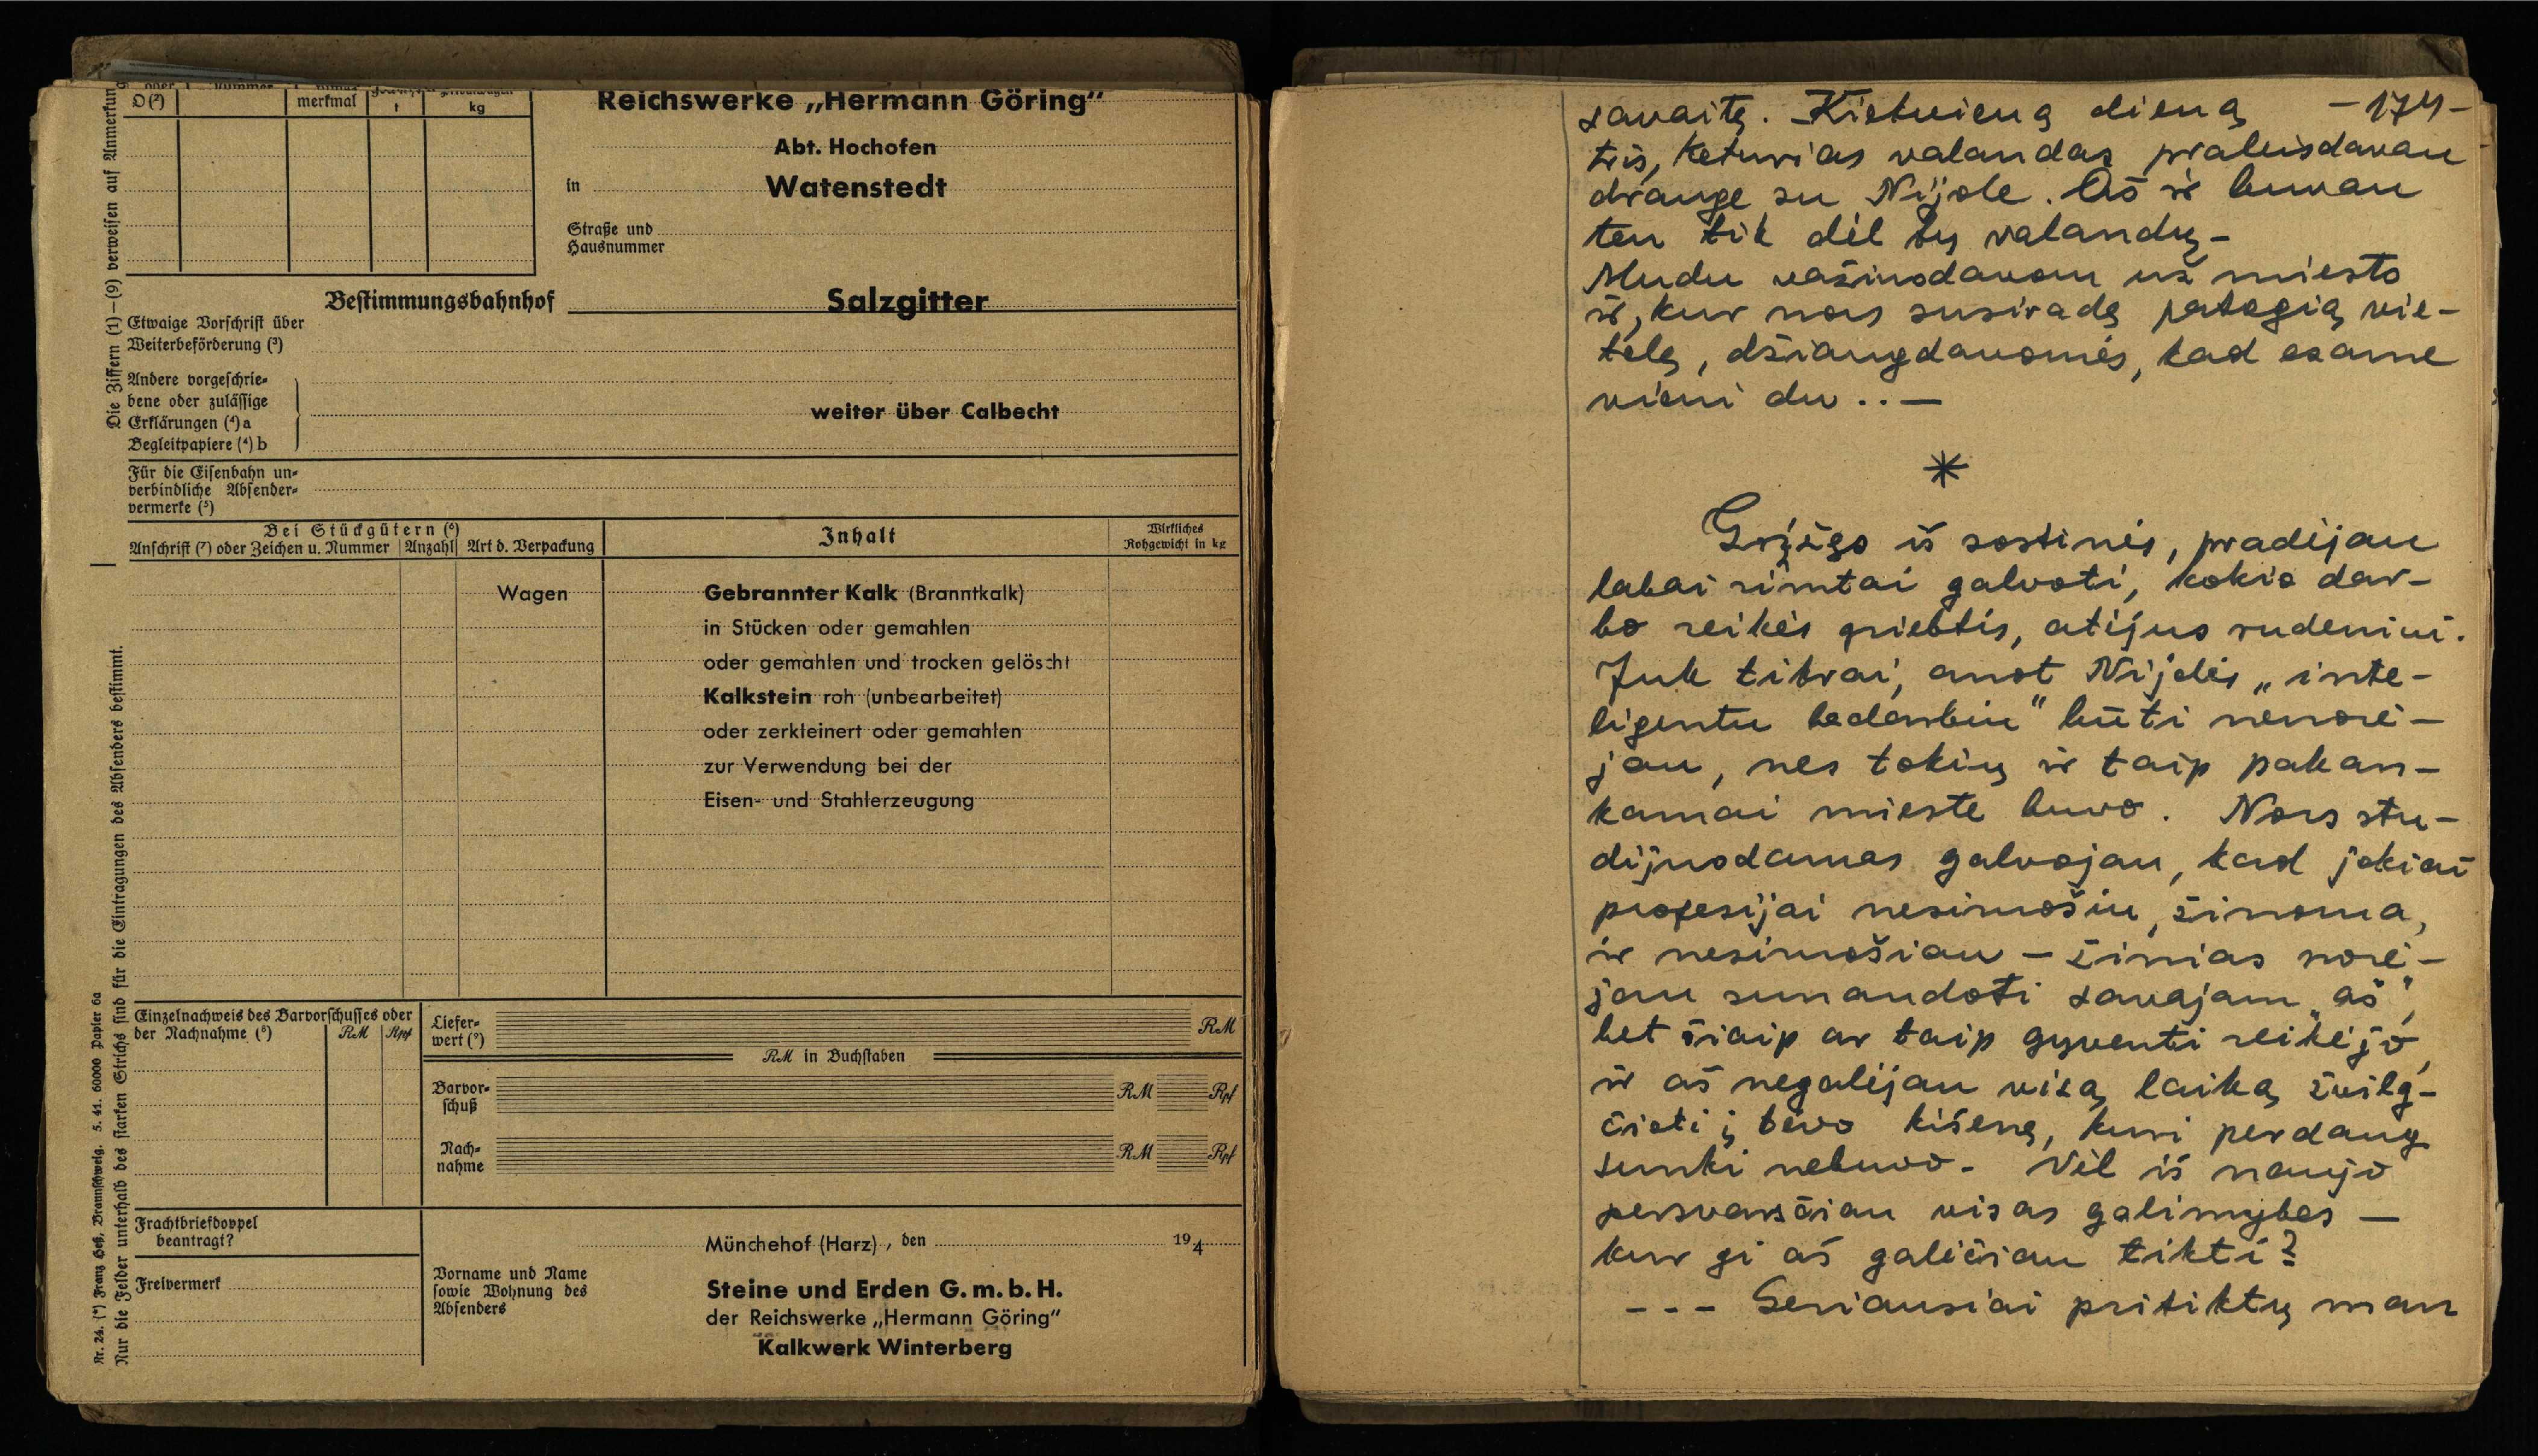 merkmal
t
kg
D (²)
Reichswerke „Hermann Göring“
Abt. Hochofen
in Watenstedt
Straße und
Hausnummer
Bestimmungsbahnhof Salzgitter
Etwaige Vorschrift über
Weiterbeförderung (³)
Andere vorgeschrie-
bene oder zulässige
Erklärungen (⁴) a
Begleitpapiere (⁴) b
weiter über Calbecht
Für die Eisenbahn un-
verbindliche Absender-
vermerke (⁵)
Bei Stückgütern (⁶)
Anschrift (⁷) oder Zeichen u. Nummer Anzahl Art d. Verpackung
Inhalt
Wirkliches
Rohgewicht in kg
Wagen
Gebrannter Kalk (Branntkalk)
in Stücken oder gemahlen
oder gemahlen und trocken gelöscht
Kalkstein roh (unbearbeitet)
oder zerkleinert oder gemahlen
zur Verwendung bei der
Eisen- und Stahlerzeugung
Einzelnachweis des Barvorschusses oder
der Nachnahme (⁸) RM Rpf
Liefer-
wert (⁹) RM
RM in Buchstaben
Barvor-
schuß RM Rpf
Nach-
nahme RM Rpf
Frachtbriefdoppel
beantragt?
Freivermerk
Münchehof (Harz), den 194
Vorname und Name
sowie Wohnung des
Absenders
Steine und Erden G. m. b. H.
der Reichswerke „Hermann Göring“
Kalkwerk Winterberg
Die Ziffern (1)—(9) verweisen auf Anmerkun
Nur die Felder unterhalb des starken Strichs sind für die Eintragungen des Absenders bestimmt.
Nr. 24. (*) Franz Heß, Braunschweig. 5. 41. 60000 Papier 6a
savaitę. Kiekvieną dieną -174-
tris, keturias valandas praleisdavau
drauge su Nijole. Aš ir buvau
ten tik dėl tų valandų-
Mudu važinodavom už miesto
ir, kur nors susiradę patogią vie-
telę, džiaugdavomės, kad esame
vieni du .. —
*
Grįžęs iš sostinės, pradėjau
labai rimtai galvoti, kokio dar-
bo reikės griebtis, atėjus rudeniui.
Juk tikrai, anot Nijolės „inte-
ligentu bedarbiu“ būti nenorė-
jau, nes tokių ir taip pakan-
kamai mieste buvo. Nors stu-
dijuodamas galvojau, kad jokiai
profesijai nesiruošiu, žinoma,
ir nesiruošiau - žinias norė-
jau sunaudoti savajam „aš“,
bet šiaip ar taip gyventi reikėjo,
ir aš negalėjau visą laiką žvilg-
čioti į tėvo kišenę, kuri perdaug
sunki nebuvo. Vėl iš naujo
persvarsčiau visas galimybes —
kur gi aš galėčiau tikti?
- - - Geriausiai pritiktų man